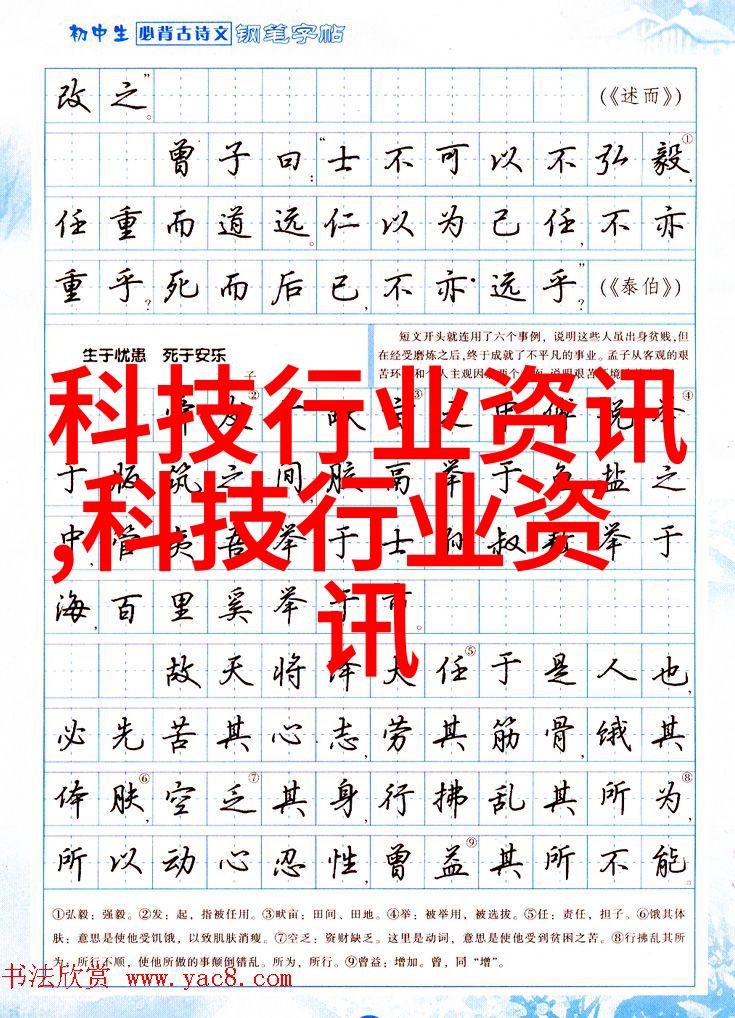 初中生 必背古诗文 钢笔字帖
改之。” (《述而》)
曾子曰：“士不可以不弘毅①，
任重而道远。仁以为己任，不亦
重乎？死而后已，不亦远乎？” (《泰伯》)
生于忧患 死于安乐
短文开头就连用了六个事例，说明这些人虽出身贫贱，但
在经受磨炼之后，终于成就了不平凡的事业。孟子从客观的艰
苦环
科技行业资讯
,科技行业资
讯
于版筑之间，胶鬲举于鱼盐之
中，管夷吾举于士 叔敖举于
海，百里奚举于市。
故天将降大任⑤于是人也，
必先苦其心志，劳其筋骨，饿其
体肤⑥，空乏⑦其身，行拂乱其所为⑧，
所以动心忍性，曾益⑨其所不能
①弘毅：强毅。②发：起，指被任用。③畎亩：田间、田地。④举：被举用，被选拔。⑤任：责任，担子。⑥饿其体
肤：意思是使他受饥饿，以致肌肤消瘦。⑦空乏：资财缺乏。这里是动词，意思是使他受到贫困之苦。⑧行拂乱其所
为：所行不顺，使他所做的事颠倒错乱。所为，所行。⑨曾益：增加。曾，同“增”。
书法欣赏 www.yac8.com